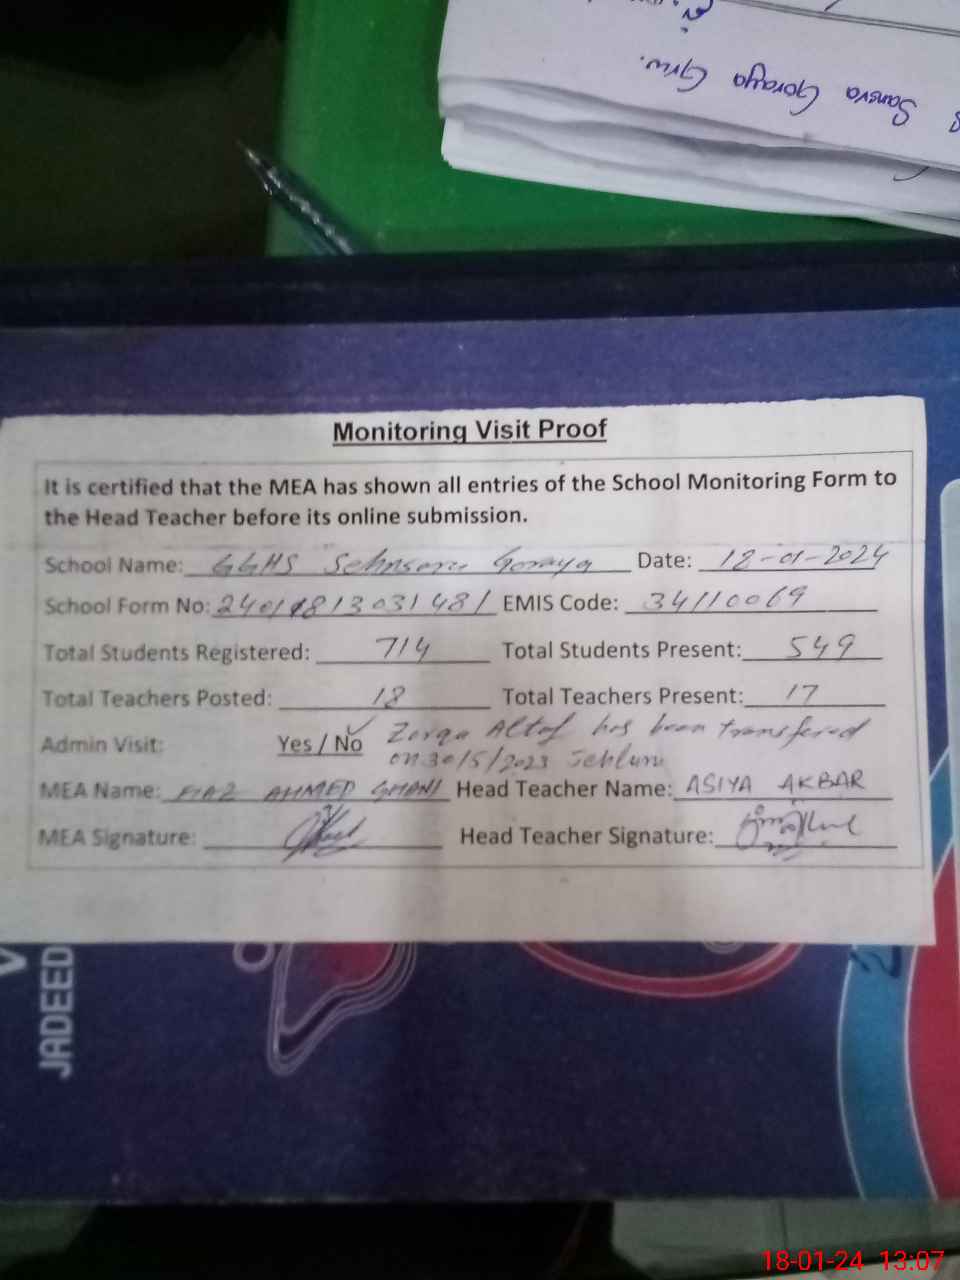 Sansra Goraya Grw.
Monitoring Visit Proof
It is certified that the MEA has shown all entries of the School Monitoring Form to
the Head Teacher before its online submission.
School Name: GGHS Sehnsara Goraya Date: 18-01-2024
School Form No: 2401181303148/ EMIS Code: 34110069
Total Students Registered: 714 Total Students Present: 549
Total Teachers Posted: 18 Total Teachers Present: 17
Admin Visit: Yes / No ✓ Zarqa Altaf has been transfered
on 30/5/2023 Jehlum
MEA Name: FIAZ AHMED GHANI Head Teacher Name: ASIYA AKBAR
MEA Signature: Head Teacher Signature:
JADEED
18-01-24 13:07